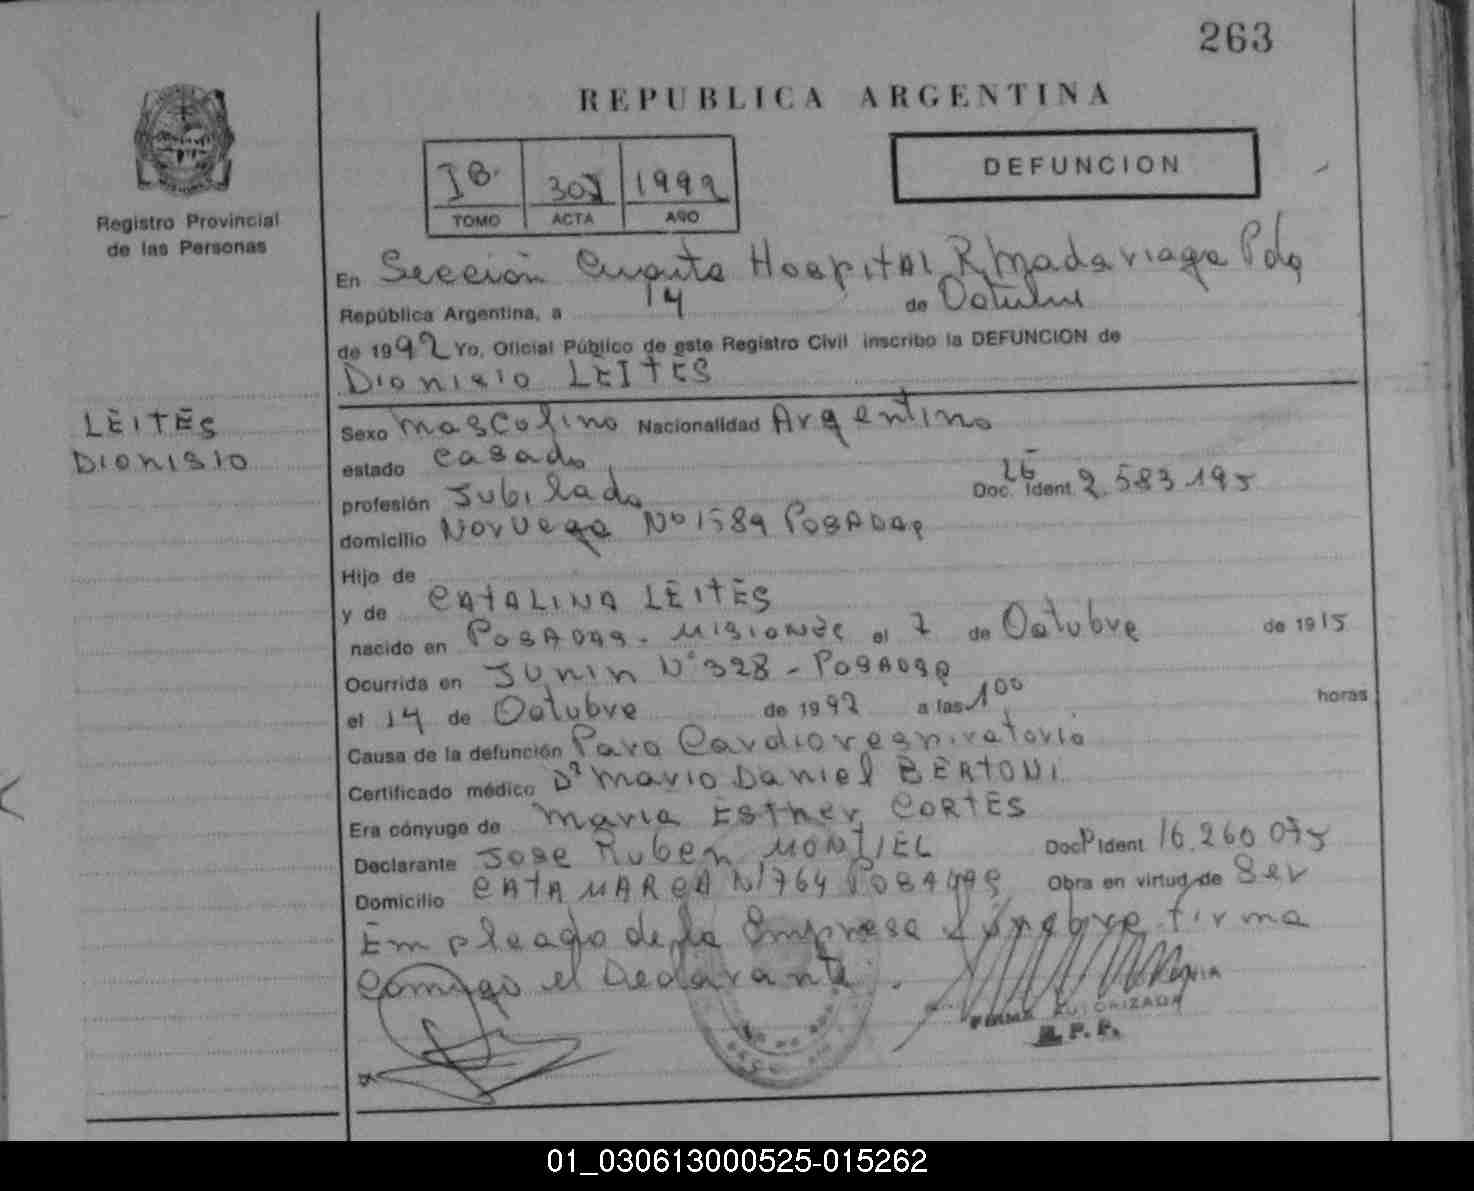 263
REPUBLICA ARGENTINA
DEFUNCION
1992
TOMO ACTA AÑO
Registro Provincial
de las Personas
En Sección Cuarta Hospital R. Madariaga Pdas
República Argentina, a 14 de Octubre
de 1992 Yo, Oficial Público de este Registro Civil inscribo la DEFUNCION de
Dionisio LEITES
LEITES
DIONISIO
Sexo Mascolino Nacionalidad Argentino
estado Casado
profesión Jubilado Doc. Ident. 2.583.195
domicilio Noruega Nº 1589 POSADAS
Hijo de
y de CATALINA LEITES
nacido en POSADAS - MISIONES el 7 de Octubre de 1915
Ocurrida en JUNIN Nº 328 - POSADAS
el 14 de Octubre de 1992 a las 1 00 horas
Causa de la defunción Paro Cardiorespiratorio
Certificado médico Dr Mario Daniel BERTONI
Era cónyuge de Maria Esther CORTES
Declarante Jose Ruben MONTIEL Doc. Ident 16.260.075
Domicilio CATAMARCA N 1764 POSADAS Obra en virtud de Ser
Empleado de la Empresa fúnebre firma
comigo el Declarante.
FIRMA AUTORIZADA
R. P. P.
01_030613000525-015262